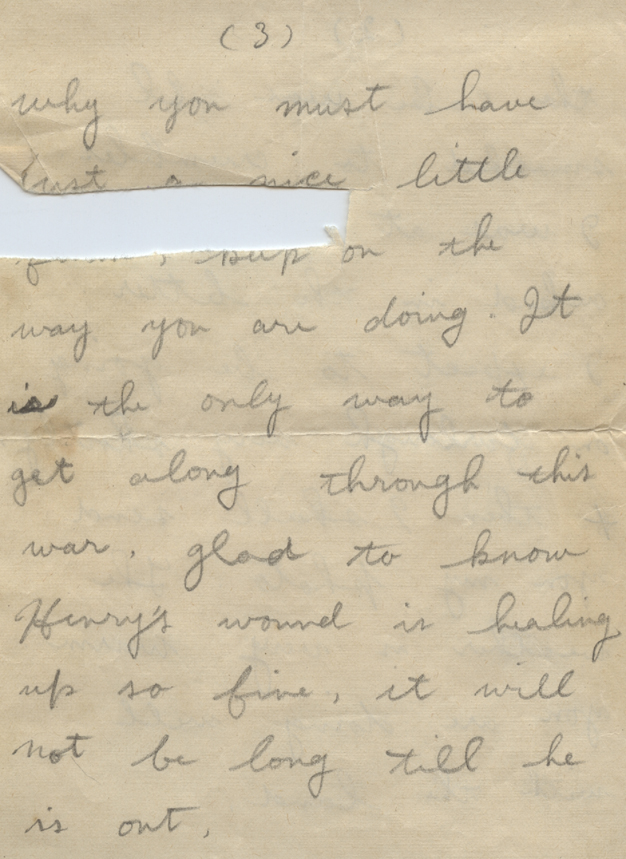 (3)
why you must have
just a nice little
, keep on the
way you are doing. It
is the only way to
get along through this
war, glad to know
Henry's wound is healing
up so fine, it will
not be long till he
is out,